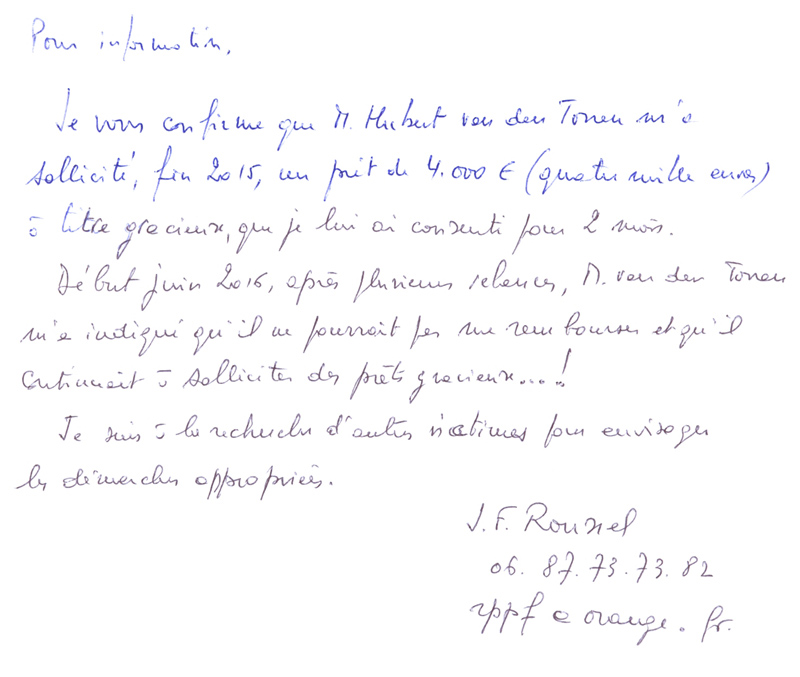 Pour information,
Je vous confirme que M. Hubert van den Torren m'a
sollicité, fin 2015, un prêt de 4.000 € (quatre mille euros)
à titre gracieux, que je lui ai consenti pour 2 mois.
Début juin 2016, après plusieurs relances, M. van den Torren
m'a indiqué qu'il ne pourrait pas me rembourser et qu'il
continuait à solliciter des prêts gracieux....!
Je suis à la recherche d'autres victimes pour envisager
les démarches appropriées.
J.F. Roussel
06. 87.73.73.82
rppf @ orange.fr.